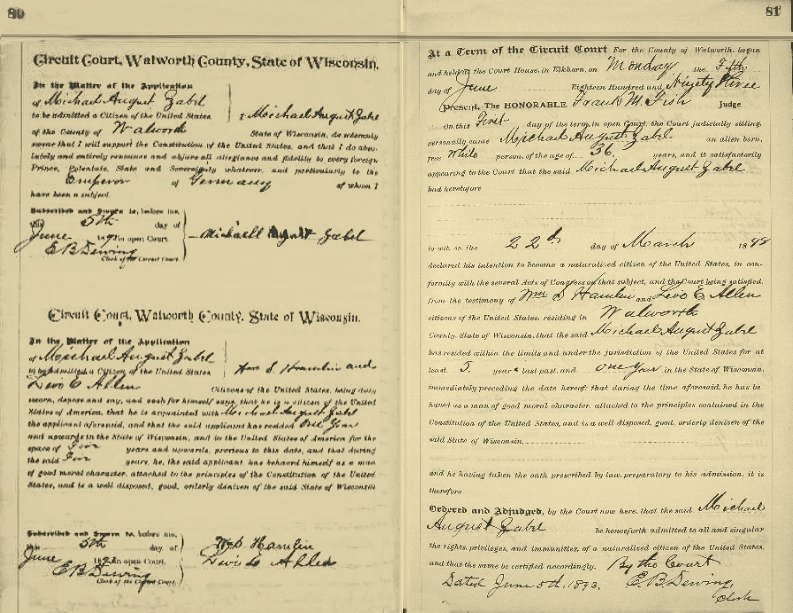 80
Circuit Court, Walworth County, State of Wisconsin.
In the Matter of the Application
of Michael August Zabel
to be admitted a Citizen of the United States.
I Michael August Zabel
of the County of Walworth State of Wisconsin, do solemnly
swear that I will support the Constitution of the United States, and that I do abso-
lutely and entirely renounce and abjure all allegiance and fidelity to every foreign
Prince, Potentate, State and Sovereignty whatever, and particularly to the
Emperor of Germany of whom I
have been a subject.
Subscribed and Sworn to, before me,
this 5th day of
June in open Court.
E B Dewing
Clerk of the Circuit Court
Michaell August Zabel
Circuit Court, Walworth County, State of Wisconsin.
In the Matter of the Application
of Michael August Zabel
to be admitted a Citizen of the United States
Wm S Hamlin and
Levo E Allen
Citizens of the United States, being duly
sworn, depose and say, and each for himself says, that he is a citizen of the United
States of America, that he is acquainted with Michael August Zabel
the applicant aforesaid, and that the said applicant has resided One Year
and upwards in the State of Wisconsin, and in the United States of America for the
space of Five years and upwards, previous to this date, and that during
the said Five years, he, the said applicant has behaved himself as a man
of good moral character, attached to the principles of the Constitution of the United
States, and is a well disposed, good, orderly denizen of the said State of Wisconsin
Subscribed and Sworn to, before me,
this 5th day of
June in open Court.
E B Dewing
Clerk of the Circuit Court
W S Hamlin
81
At a Term of the Circuit Court For the County of Walworth, begun
and held at the Court House, in Elkhorn, on Monday the Fifth
day of June Eighteen Hundred and Ninety three
Present, The HONORABLE Frank M. Fish Judge.
On this First day of the term in open Court, the Court judicially sitting,
personally came Michael August Zabel an alien born,
free white person, of the age of 36 years, and it satisfactorily
appearing to the Court that the said Michael August Zabel
had heretofore
to wit, on the 22d day of March 18
declared his intention to become a naturalized citizen of the United States, in con-
formity with the several Acts of Congress on that subject, and the Court being satisfied,
from the testimony of Wm S Hamlin and Levo E Allen
citizens of the United States, residing in Walworth
County, State of Wisconsin, that the said Michael August Zabel
has resided within the limits and under the jurisdiction of the United States for at
least 5 years last past, and one year in the State of Wisconsin,
immediately preceding the date hereof; that during the time aforesaid, he has be-
haved as a man of good moral character, attached to the principles contained in the
Constitution of the United States, and is a well disposed, good, orderly denizen of the
said State of Wisconsin
and he having taken the oath prescribed by law, preparatory to his admission, it is
therefore
Ordered and Adjudged, by the Court now here, that the said Michael
August Zabel be henceforth admitted to all and singular
the rights, privileges, and immunities, of a naturalized citizen of the United States,
and that the same be certified accordingly. By the Court
Dated June 5th, 1893. E. B. Dewing,
Clerk